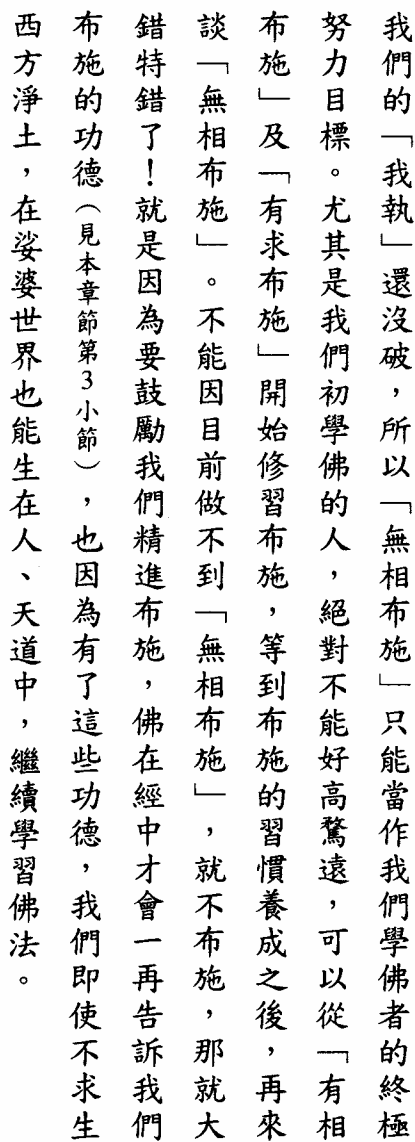 我們的「我執」還沒破，所以「無相布施」只能當作我們學佛者的終極
努力目標。尤其是我們初學佛的人，絕對不能好高騖遠，可以從「有相
布施」及「有求布施」開始修習布施，等到布施的習慣養成之後，再來
談「無相布施」。不能因目前做不到「無相布施」，就不布施，那就大
錯特錯了！就是因為要鼓勵我們精進布施，佛在經中才會一再告訴我們
布施的功德（見本章節第3小節），也因為有了這些功德，我們即使不求生
西方淨土，在娑婆世界也能生在人、天道中，繼續學習佛法。